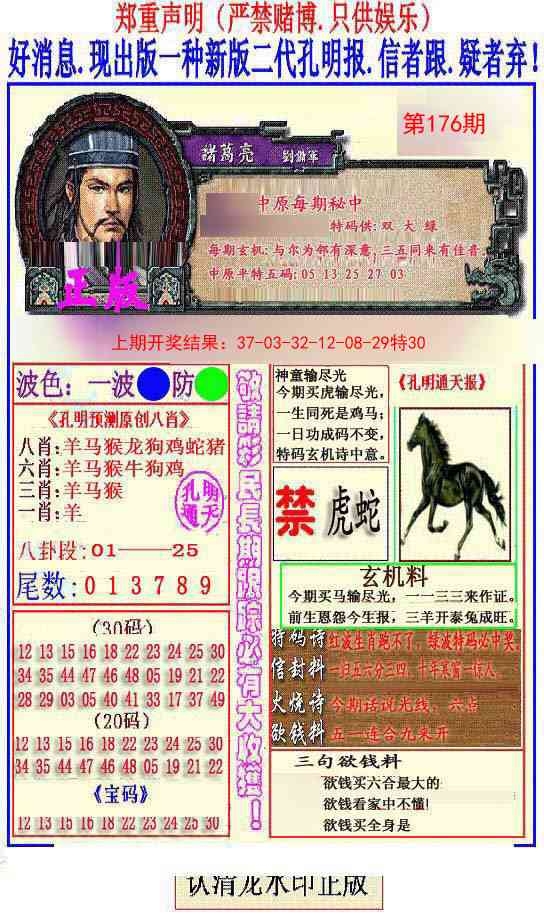 郑重声明（严禁赌博.只供娱乐）
好消息.现出版一种新版二代孔明报.信者跟.疑者弃!
第176期
諸葛亮
劉備軍
中原每期秘中
特码供: 双 大 绿
每期玄机: 与尔为邻有深意,三五同来有佳音.
中原平特五码: 05 13 25 27 03
正版
上期开奖结果：37-03-32-12-08-29特30
波色：一波 防
《孔明预测原创八肖》
八肖:羊马猴龙狗鸡蛇猪
六肖:羊马猴牛狗鸡
三肖:羊马猴
一肖:羊
孔明
通天
八卦段:01——25
尾数:013789
(30码)
12 13 15 16 18 22 23 24 25 30
34 35 44 47 46 48 05 19 21 22
28 29 03 05 40 41 33 17 37 49
(20码)
12 13 15 16 18 22 23 24 25 30
34 35 44 47 46 48 05 19 21 22
《宝码》
12 13 15 16 18 22 23 24 25 30
敬請彩民長期跟踪必有大收獲！
神童输尽光
今期买虎输尽光，
一生同死是鸡马；
一日功成码不变，
特码玄机诗中意。
《孔明通天报》
禁
虎蛇
玄机料
今期买马输尽光，一一三三来作证。
前生恩怨今生报，三羊开泰兔成旺。
特码诗 红波生肖跑不了，绿波特码必中奖。
信封料 一归五六分三四，十年寒窗一待人。
火烧诗 今期话说光线，六点
欲钱料 五一连合九来开
三句欲钱料
欲钱买六合最大的
欲钱看家中不懂!
欲钱买全身是
认清龙水印正版